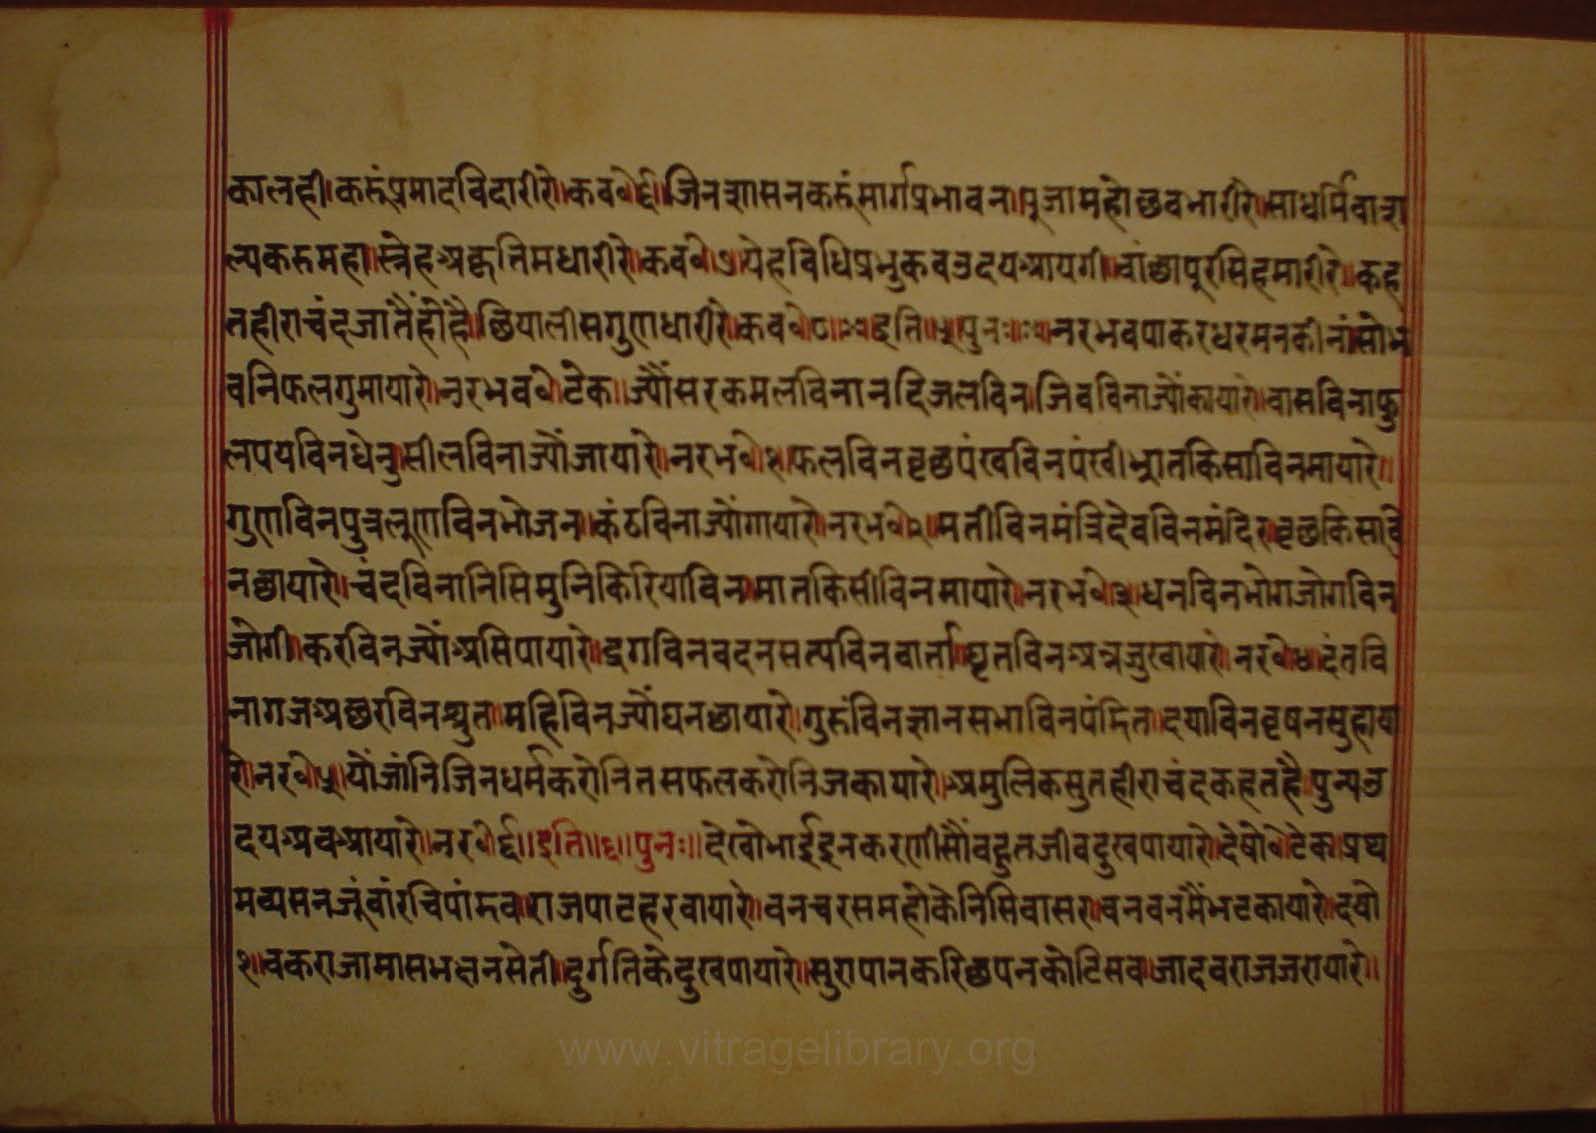 कालही।करूंप्रमादविदारीरे॥कबबे॰६॥जिनशासनकरूंमार्गप्रभावन॥पूजामहोछवभारीरे॥साधर्मिवाश
ल्यकरुमहा॥स्नेहअकृतिमधारीरे॥कबबे॰७॥येहविधिप्रभुकबउदयआयगी॥वांछापूरसिहमारीरे॥कह
तहीराचंदजांतैंहोंहै॥छियालीसगुणधारीरे॥कबबे॰८॥इति॥५॥पुनः॥नरभवपाकरधरमनकीनां॥सोभ
वनिफलगुमायारे॥नरभवबे॰टेक॥ज्यौंसरकमलविनानदिजलविन॥जिवविनाज्योंकायारे॥वासविनाफु
लपयविनधेनु॥सीलविनाज्योंजायारे॥नरभबे॰१॥फलविनवृछपंखविनपंखी॥भ्रातकिसाविनमायारे॥
गुणविनपुत्रलूणविनभोजन॥कंठविनाज्योंगायारे॥नरभबे॰२॥मतीविनमंत्रिदेवविनमंदिर॥वृछकिसावि
नछायारे॥चंदविनानिसिमुनिकिरियाविन॥मातकिसीविनमायारे॥नरभबे॰३॥धनविनभोगजोगविन
जोगी॥करविनज्योंअसिपायारे॥द्रगविनवदनसत्यविनवार्ता॥घृतविनअन्नजुखायारे॥नरबे॰४॥दंतवि
नागजअछरविनश्रुत॥महिविनज्योंघनछायारे॥गुरुंविनज्ञानसभाविनपंडित॥दयाविनवृषनसुहाया
रे॥नरबे॰५॥योंजांनिजिनधर्मकरोनित॥सफलकरोनिजकायारे॥अमुलिकसुतहीराचंदकहतहै॥पुन्यउ
दयअवआयारे॥नरबे॰६॥इति॥६॥पुनः॥देखोभाईइनकरणीसौंबहुतजीवदुखपायारे॥देषोबे॰टेक॥प्रथ
मव्यसनजूंवांरचिपांडव॥राजपाटहरवायारे॥वनचरसमहोकेनिसिवासर॥वनवनमैंभटकायारे॥दयो
१॥वकराजामासभक्षनसेती॥दुर्गतिकेदुखपायारे॥सुरापानकरिछपनकोटिसब॥जादवराजजरायारे॥
www.vitragelibrary.org